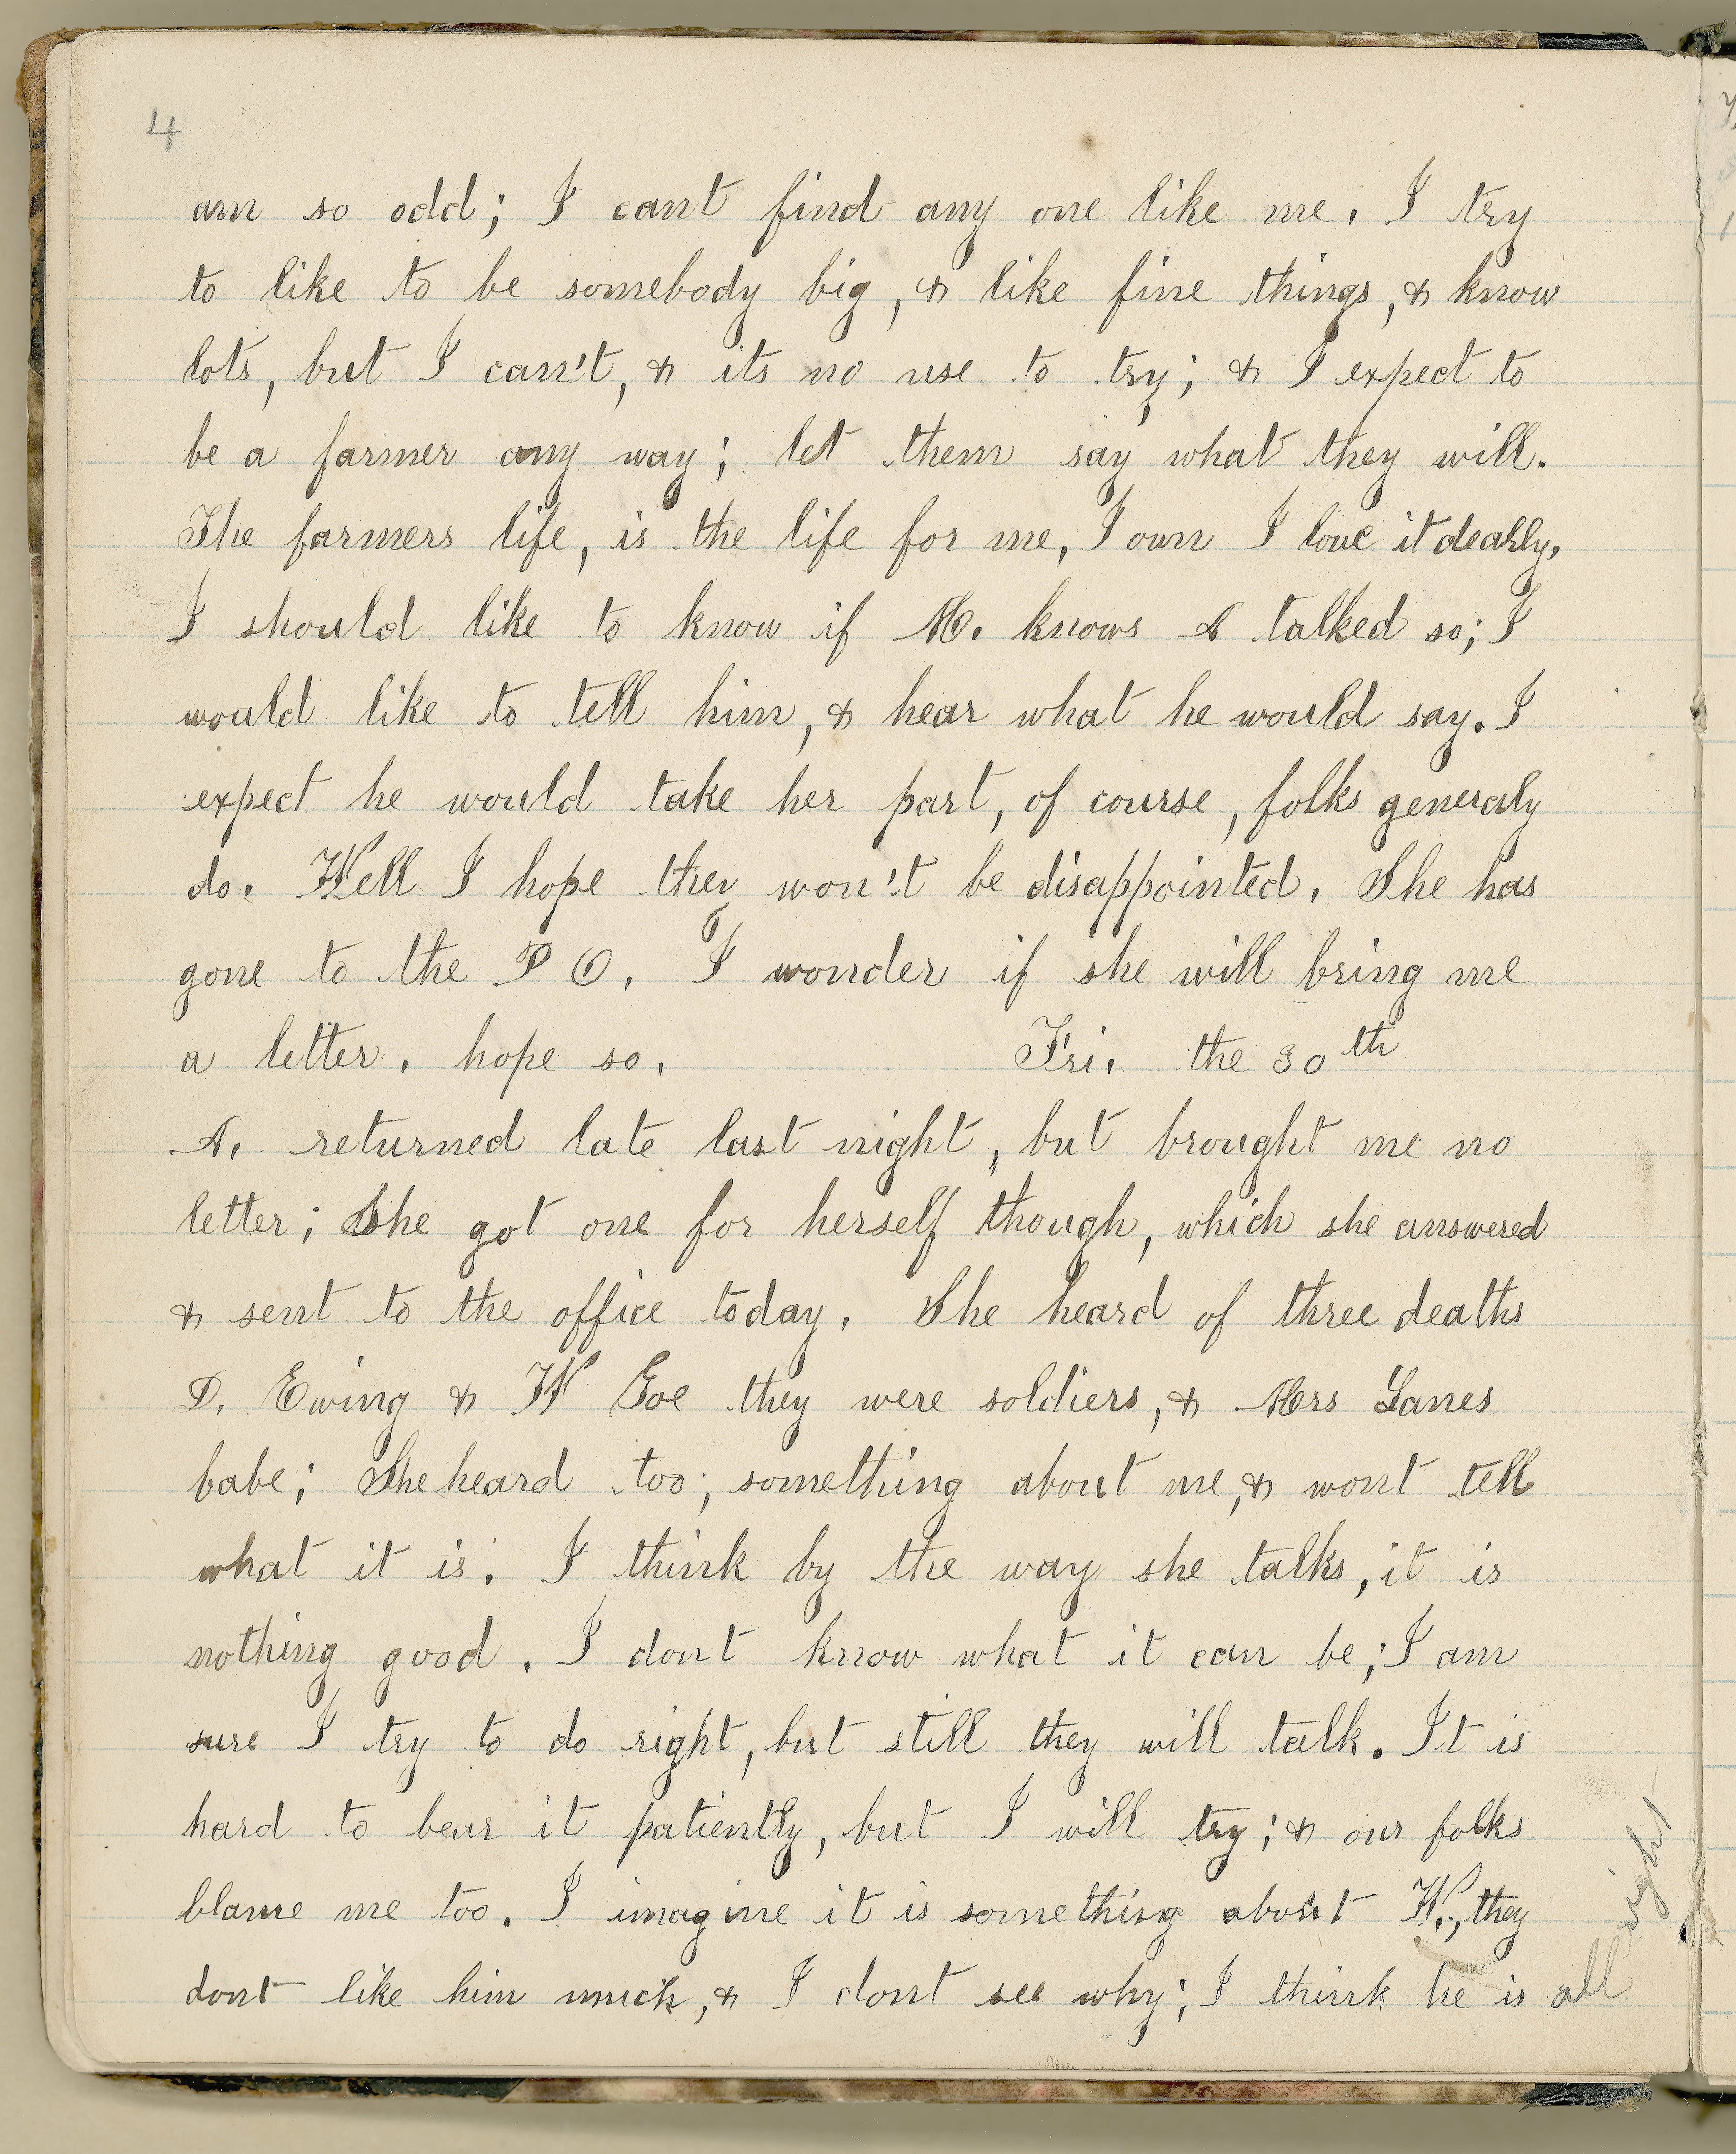 4
am so odd; I cant find any one like me. I try
to like to be somebody big, & like fine things, & know
lots, but I can't, & its no use to try; & I expect to
be a farmer any way; let them say what they will.
The farmers life, is the life for me, I own I love it dearly.
I should like to know if M. knows A talked so; I
would like to tell him, & hear what he would say. I
expect he would take her part, of course, folks generaly
do. Well I hope they won't be disappointed. She has
gone to the P O. I wonder if she will bring me
a letter. hope so. Fri. the 30th
A. returned late last night, but brought me no
letter; She got one for herself though, which she answered
& sent to the office today. She heard of three deaths
D. Ewing & W Goe they were soldiers, & Mrs Lanes
babe; She heard too; something about me, & wont tell
what it is. I think by the way she talks, it is
nothing good. I dont know what it can be; I am
sure I try to do right, but still they will talk. It is
hard to bear it patiently, but I will try; & our folks
blame me too. I imagine it is something about W., they
dont like him much, & I dont see why; I think he is all
right